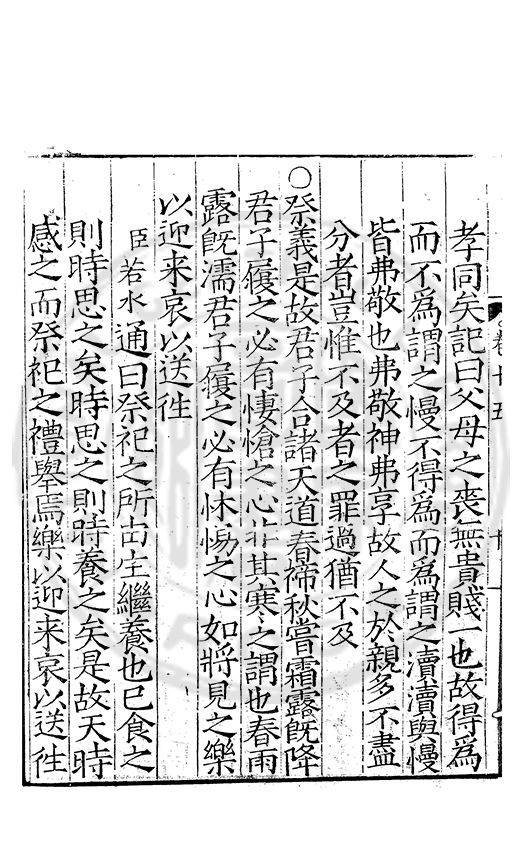 孝同矣記曰父母之喪無貴賤一也故得爲
而不爲謂之慢不得爲而爲謂之瀆瀆與慢
皆弗敬也弗敬神弗享故人之於親多不盡
分者豈惟不及者之罪過猶不及
○祭義是故君子合諸天道春禘秋嘗霜露旣降
君子履之必有悽愴之心非其寒之謂也春雨
露旣濡君子履之必有怵惕之心如將見之樂
以迎来哀以送徃
臣若水通曰祭祀之所由生繼養也已食之
則時思之矣時思之則時養之矣是故天時
感之而祭祀之禮舉焉樂以迎来哀以送徃
卷十五